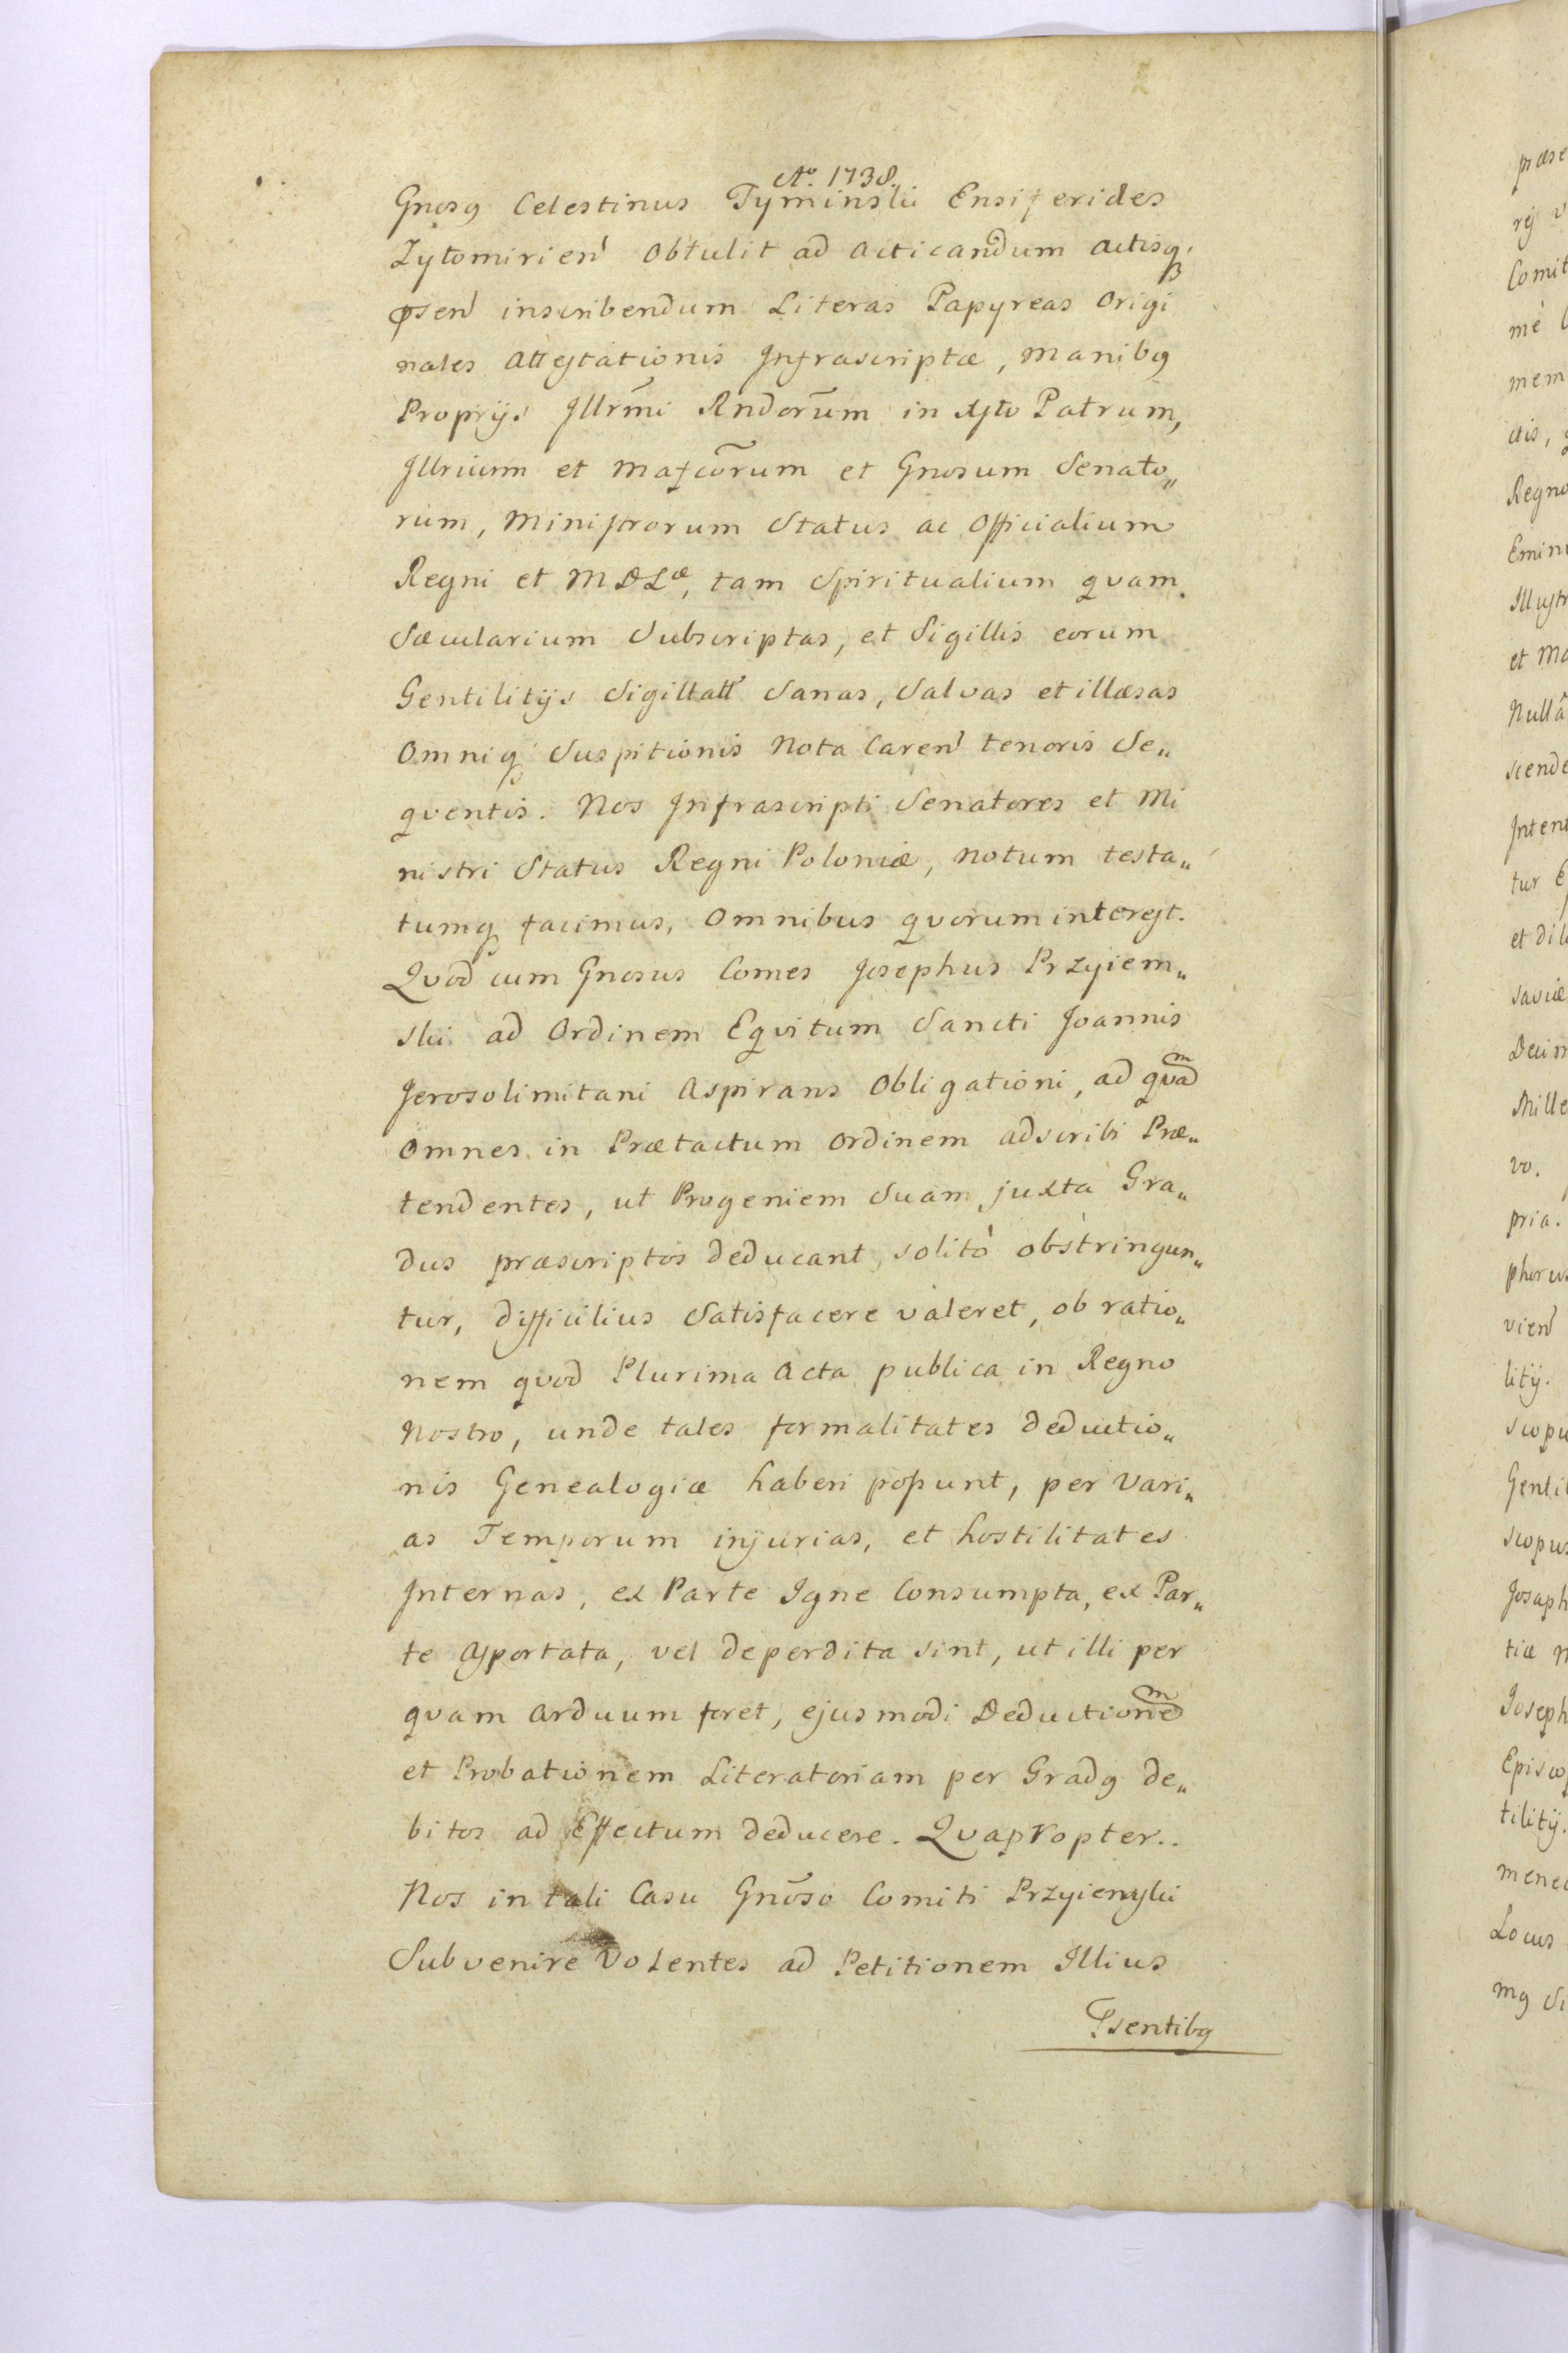 Aº. 1738.
Gnosq Celestinus Tyminski Ensiferides
Zytomirien obtulit ad acticandum actisq
psen inscribendum Literas Papyreas Origi
nales Attestationis Infrascriptæ, manibq
Proprijs Illrmi Rndorum in Xsto Patrum,
Illrium et Mafcorum et Gnosum Senato„
rum, Ministrorum Status ac Officialium
Regni et M D Læ, tam Spiritualium quam
Sæcularium Subscriptas, et Sigillis eorum
Gentilitijs Sigillatt Sanas, Salvas et illæsas
omniq Suspitionis Nota Caren tenoris Se„
quentis. Nos Infrascripti Senatores et Mi
nistri Status Regni Poloniæ, notum testa„
tumq facimus, Omnibus quorum interest.
Quod cum Gnosus Comes Josephus Przyiem„
ski ad Ordinem Equitum Sancti Joannis
Jerosolimitani Aspirans Obligationi, ad quam
omnes in Prætactum Ordinem adscribi Præ„
tendentes, ut Progeniem Suam juxta Gra„
dus præscriptos deducant, solitò obstringun„
tur, difficilius Satisfacere valeret, ob ratio„
nem quod Plurima Acta publica in Regno
Nostro, unde tales formalitates deductio„
nis Genealogiæ haberi possunt, per Vari„
as Temporum injurias, et hostilitates
Internas, ex Parte Igne Consumpta, ex Par„
te Asportata, vel deperdita sint, ut illi per
quam arduum foret, ejusmodi Deductionem
et Probationem Literatoriam per Gradq de„
bitos ad Effectum deducere. Quapropter..
Nos in tali Casu Gnoso Comiti Przyiemski
Subvenire Volentes ad Petitionem Illius
Psentibq